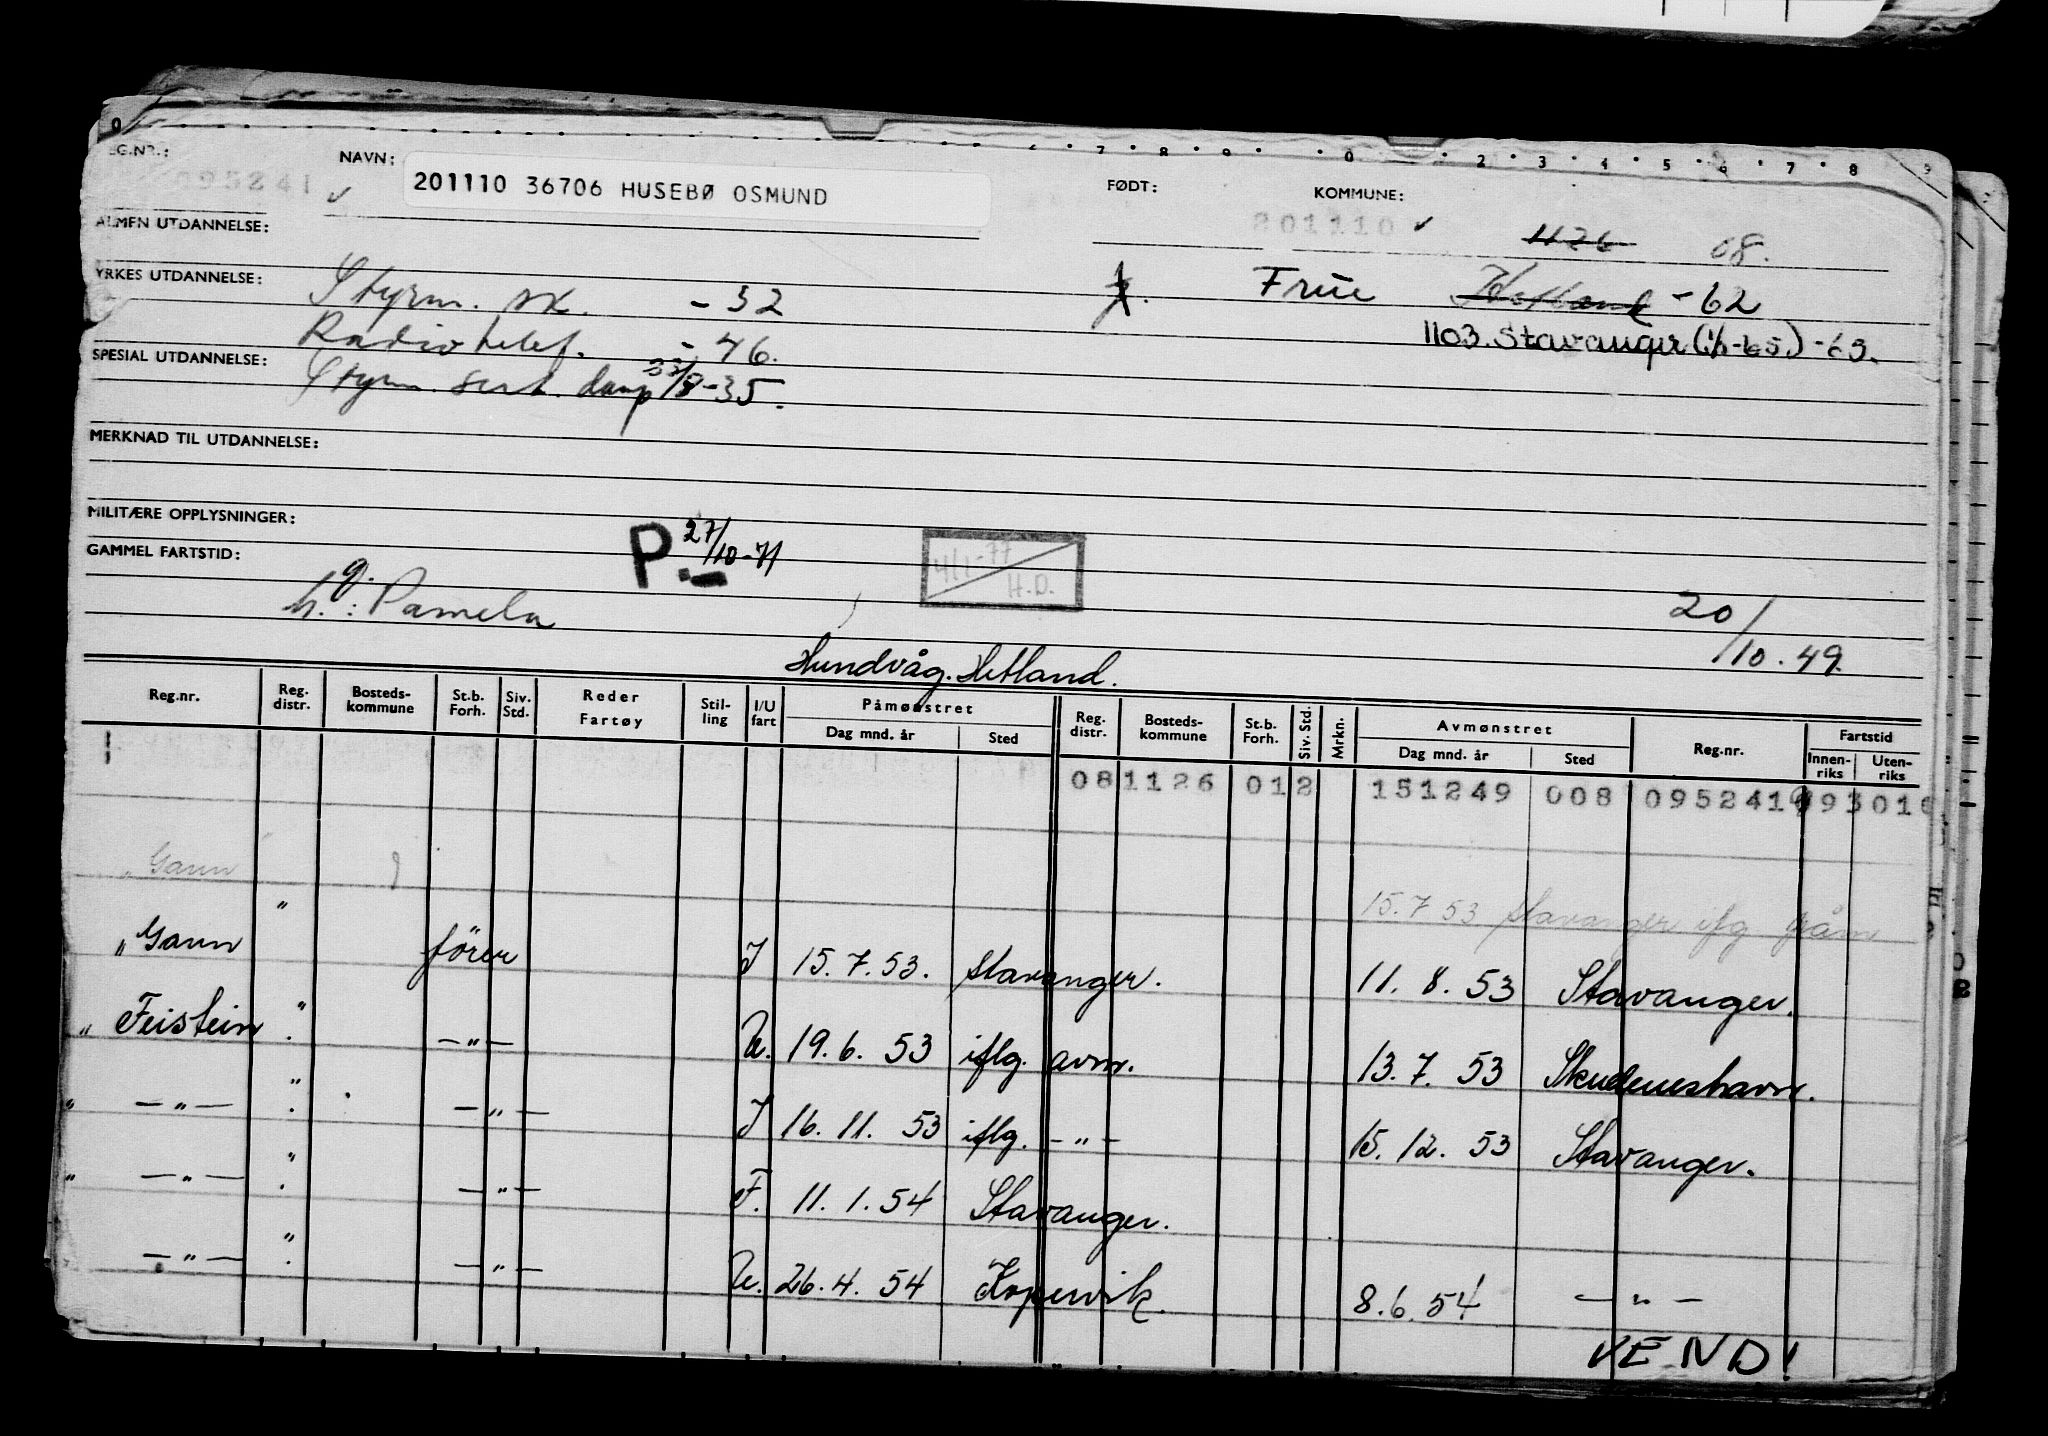 NAVN: 201110 36706 HUSEBØ OSMUND
FØDT: 201110 ✓
KOMMUNE: 1126 08.
095241 ✓
ALMEN UTDANNELSE:
YRKES UTDANNELSE: Styrm. sk. - 32
Frue Hetland - 62
Radiotelef. - 46.
1103. Stavanger (1/1-65.) - 63.
SPESIAL UTDANNELSE: Styrm. sert. damp -35.
MERKNAD TIL UTDANNELSE:
MILITÆRE OPPLYSNINGER:
P.- 27/10-71
4/1-77 H.D.
GAMMEL FARTSTID:
Pamela
20/10.49.
Hundvåg. Hetland.
Reg.nr. Reg. distr. Bosteds-kommune St.b. Forh. Siv. Std. Reder Fartøy Stil-ling I/U fart Påmønstret Dag mnd. år Sted Reg. distr. Bosteds-kommune St.b. Forh. Siv. Std. Mrkn. Avmønstret Dag mnd. år Sted Reg.nr. Fartstid Innen-riks Uten-riks
08 1126 01 2 151249 008 095241
„ Gann 15.7 53 Stavanger iflg
„ Gann " fører I 15.7.53. Stavanger. 11. 8. 53 Stavanger.
„ Feistein " - „ - U. 19. 6. 53 iflg. avm. 13. 7. 53 Skudeneshavn.
„ - „ - " - „ - I 16. 11. 53 iflg. - „ - 15. 12. 53 Stavanger.
„ - „ - " - „ - F. 11. 1. 54 Stavanger.
- „ - " - „ - U. 26. 4. 54 Kopervik. 8. 6. 54 - „ -
VEND!